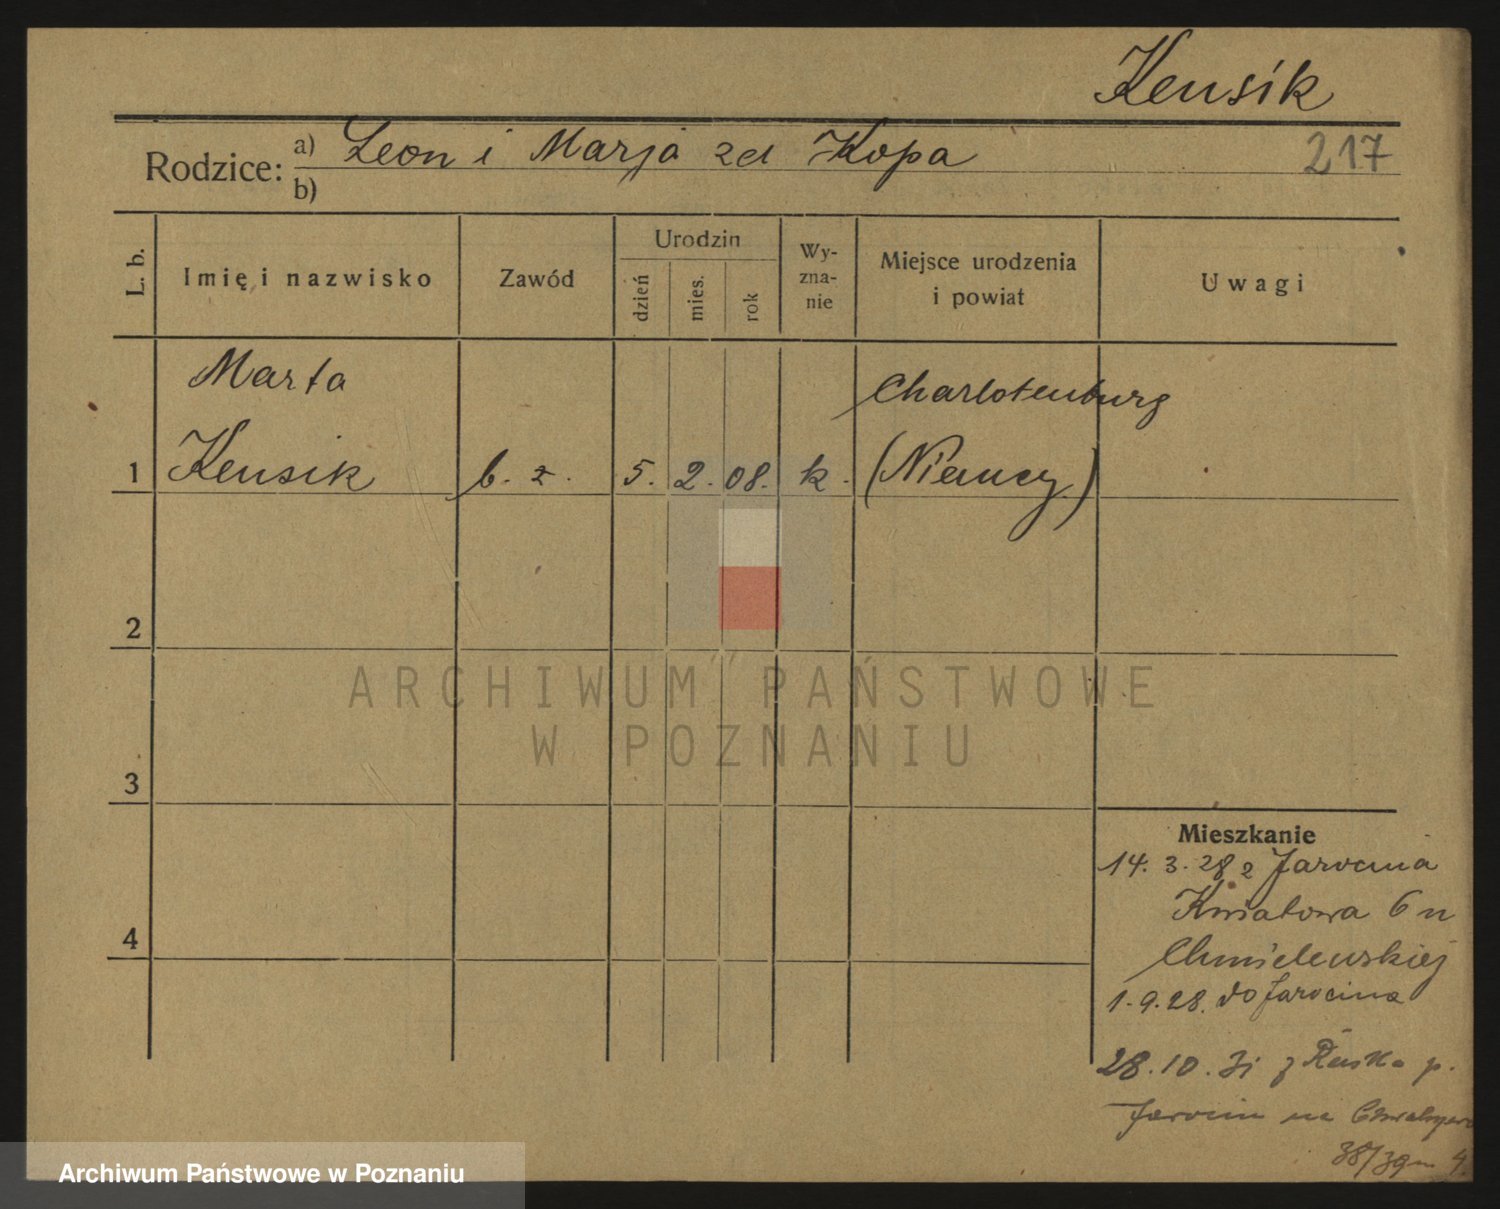 Kensik
217
Rodzice: a) Leon i Marja zd Kopa
b)
L. b.
Imię i nazwisko
Zawód
Urodzin
dzień
mies.
rok
Wy-
zna-
nie
Miejsce urodzenia
i powiat
Uwagi
Marta
Charlotenburg
1 Kensik b. z. 5. 2. 08. k. (Niemcy)
2
3
4
ARCHIWUM PAŃSTWOWE
W POZNANIU
Mieszkanie
14. 3. 28 z Jarocina
Kwiatowa 6 u
Chmielewskiej
1. 9. 28. do Jarocina
28. 10. 31 z Ruska p.
Jarocin na
38/39 m 4.
Archiwum Państwowe w Poznaniu